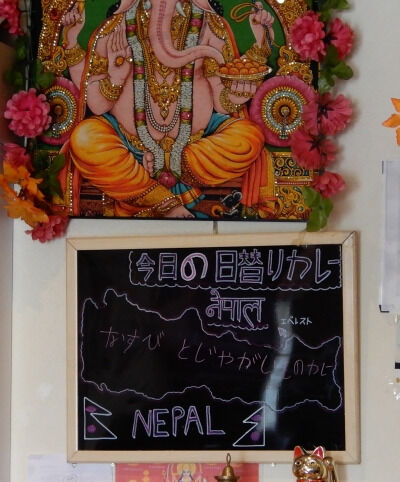 今日の日替りカレー
नेपाल
エベレスト
なすび とじゃがいものカレー
NEPAL